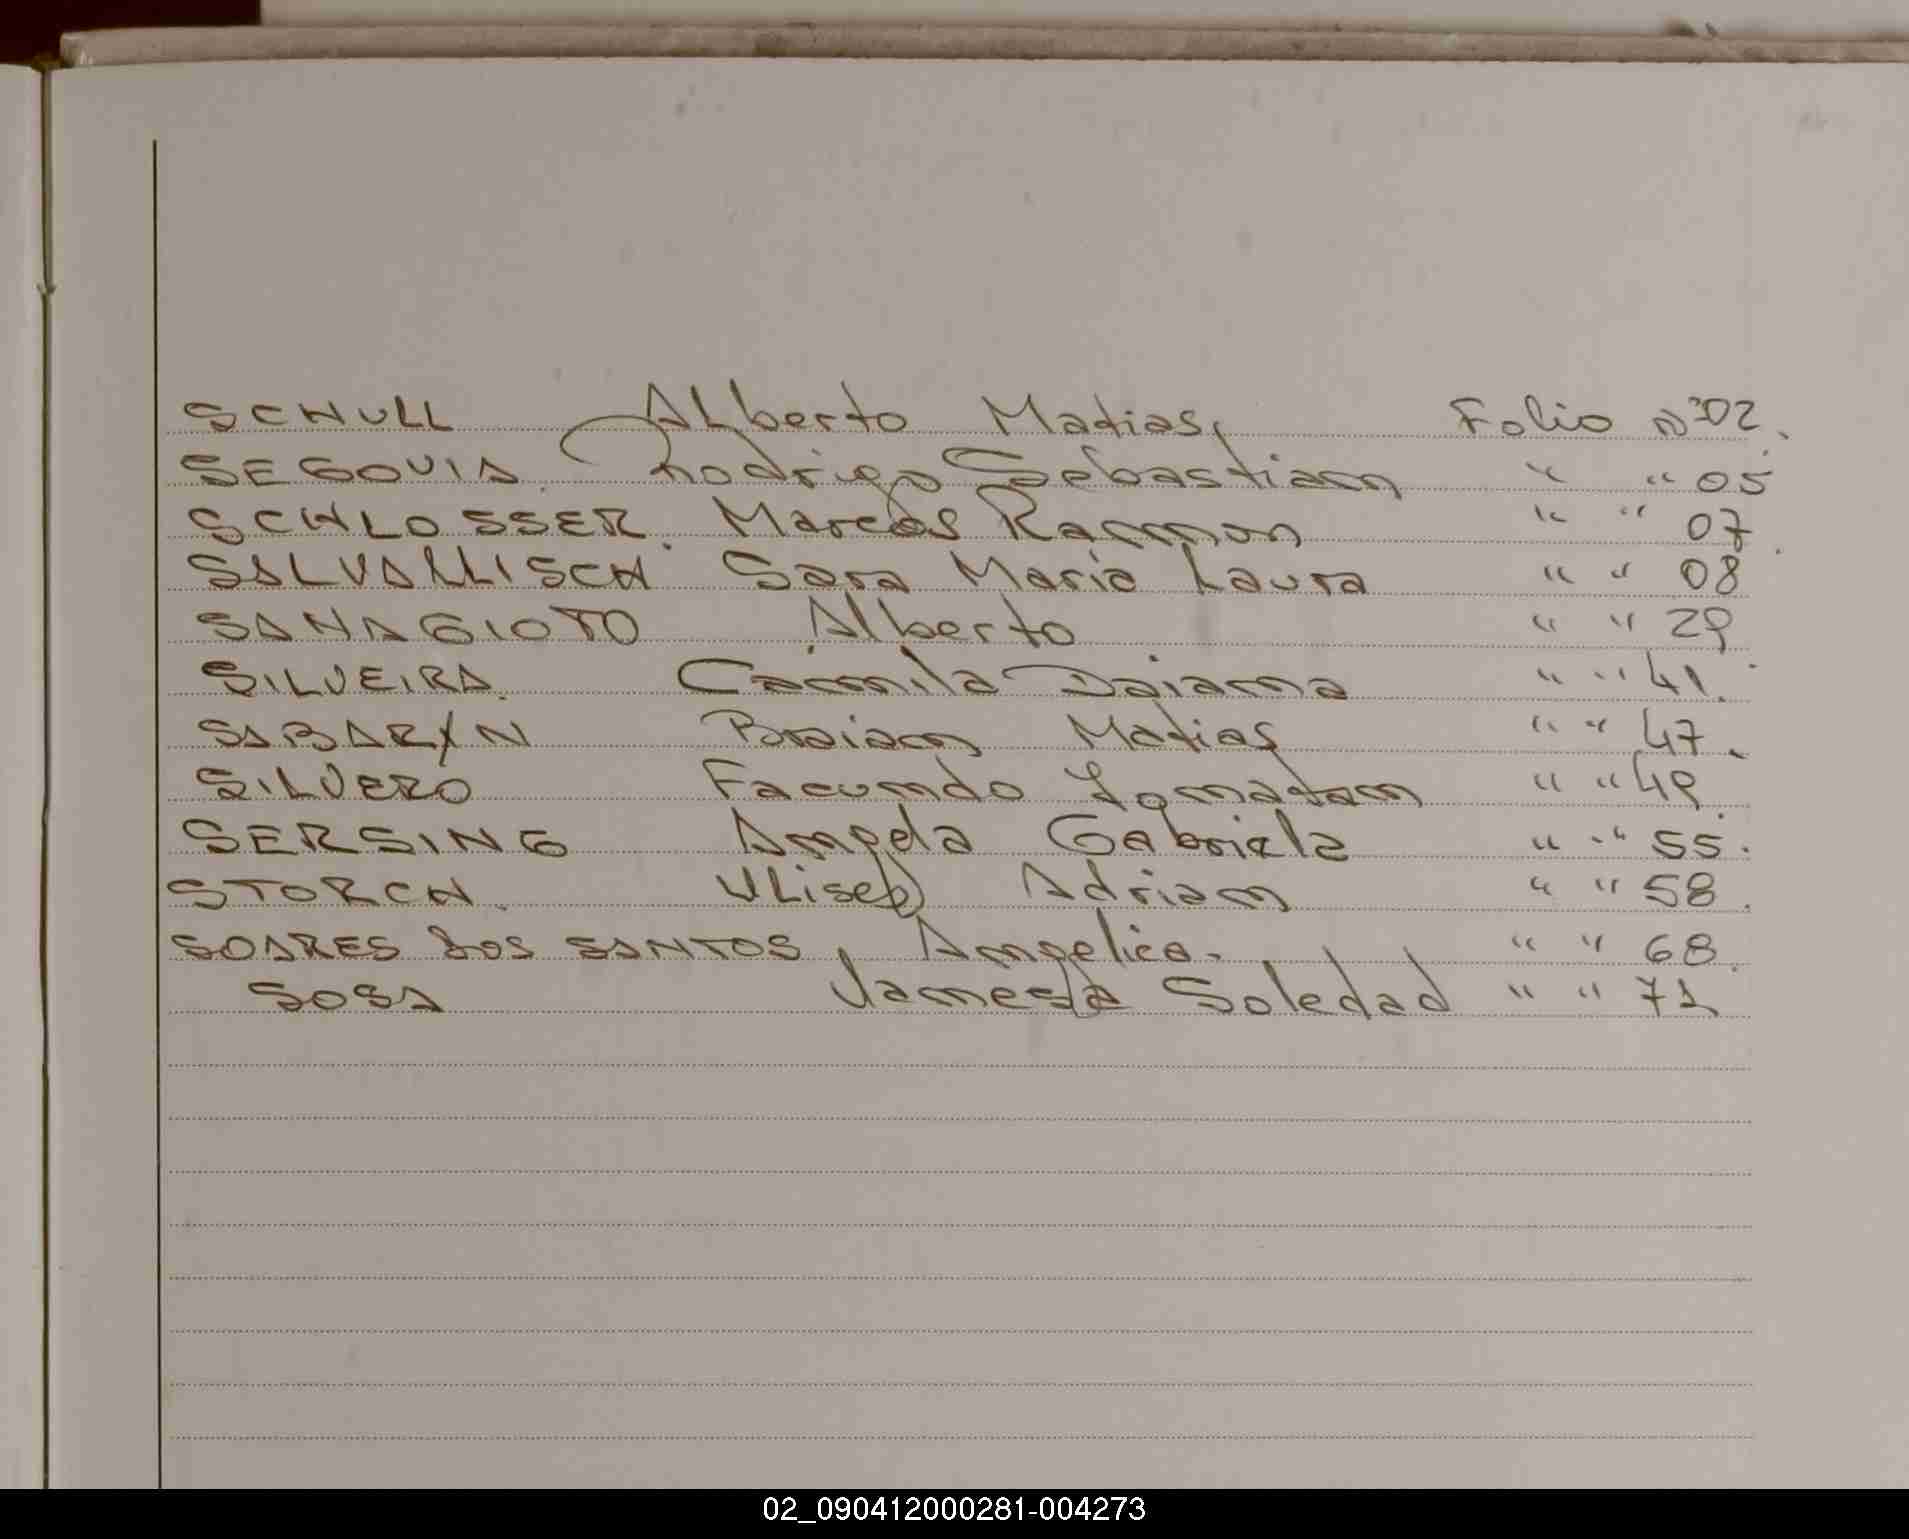 SCHULL Alberto Matias, Folio Nº 02.
SEGOVIA. Rodrigo Sebastian " " 05
SCHLOSSER. Marcos Ramon " " 07
SALVALLISCH Sara Maria Laura " " 08
SANAGIOTO Alberto " " 29
SILVEIRA. Camila Daiana " " 41.
SABARIN Braian Matias " " 47.
SILVERO Facundo Jonatan " " 49
SERSING Angela Gabriela " " 55.
STORCH. ULises Adrian " " 58.
SOARES DOS SANTOS, Angelica. " " 68.
SOSA Soledad " " 71
02_090412000281-004273